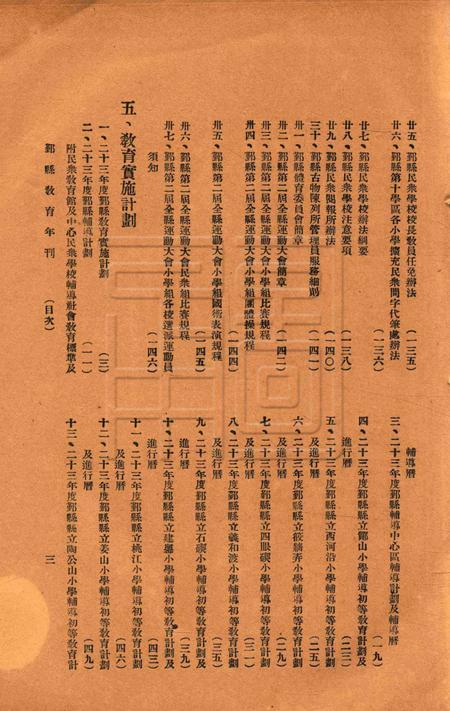 廿五、鄞縣民衆學校校長敎員任免辦法 (一三五)
廿六、鄞縣第十學區各小學擴充民衆問字代筆處辦法 (一三六)
廿七、鄞縣民衆學校辦法綱要
廿八、鄞縣民衆學校注意要項 (一三八)
廿九、鄞縣民衆閱報所辦法 (一四〇)
三十、鄞縣古物陳列所管理員服務細則 (一四一)
卅一、鄞縣體育委員會簡章
卅二、鄞縣第二屆全縣運動大會簡章 (一四二)
卅三、鄞縣第二屆全縣運動大會小學組比賽規程
卅四、鄞縣第二屆全縣運動大會小學組團體操規程 (一四四)
卅五、鄞縣第二屆全縣運動大會小學組國術表演規程 (一四五)
卅六、鄞縣第二屆全縣運動大會民衆組比賽規程
卅七、鄞縣第二屆全縣運動大會小學組各校選派運動員
須知 (一四六)
五、敎育實施計劃
一、二十三年度鄞縣敎育實施計劃 (三)
二、二十三年度鄞縣輔導計劃 (一一)
附民衆敎育館及中心民衆學校輔導社會敎育標準及
輔導曆
三、二十三年度鄞縣輔導中心區輔導計劃及輔導曆 (一九)
四、二十三年度鄞縣縣立鄮山小學輔導初等敎育計劃及
進行曆 (二二)
五、二十三年度鄞縣縣立西河沿小學輔導初等敎育計劃
及進行曆 (二五)
六、二十三年度鄞縣縣立筱牆弄小學輔導初等敎育計劃
及進行曆 (二九)
七、二十三年度鄞縣縣立四眼碶小學輔導初等敎育計劃
及進行曆 (三二)
八、二十三年度鄞縣縣立義和渡小學輔導初等敎育計劃
及進行曆 (三五)
九、二十三年度鄞縣縣立石碶小學輔導初等敎育計劃及
進行曆 (三九)
十、二十三年度鄞縣縣立建嶴小學輔導初等敎育計劃及
進行曆 (四三)
十一、二十三年度鄞縣縣立桃江小學輔導初等敎育計劃
及進行曆 (四六)
十二、二十三年度鄞縣縣立姜山小學輔導初等敎育計劃
及進行曆 (四九)
十三、二十三年度鄞縣縣立陶公山小學輔導初等敎育計
鄞縣敎育年刊 (目次) 三